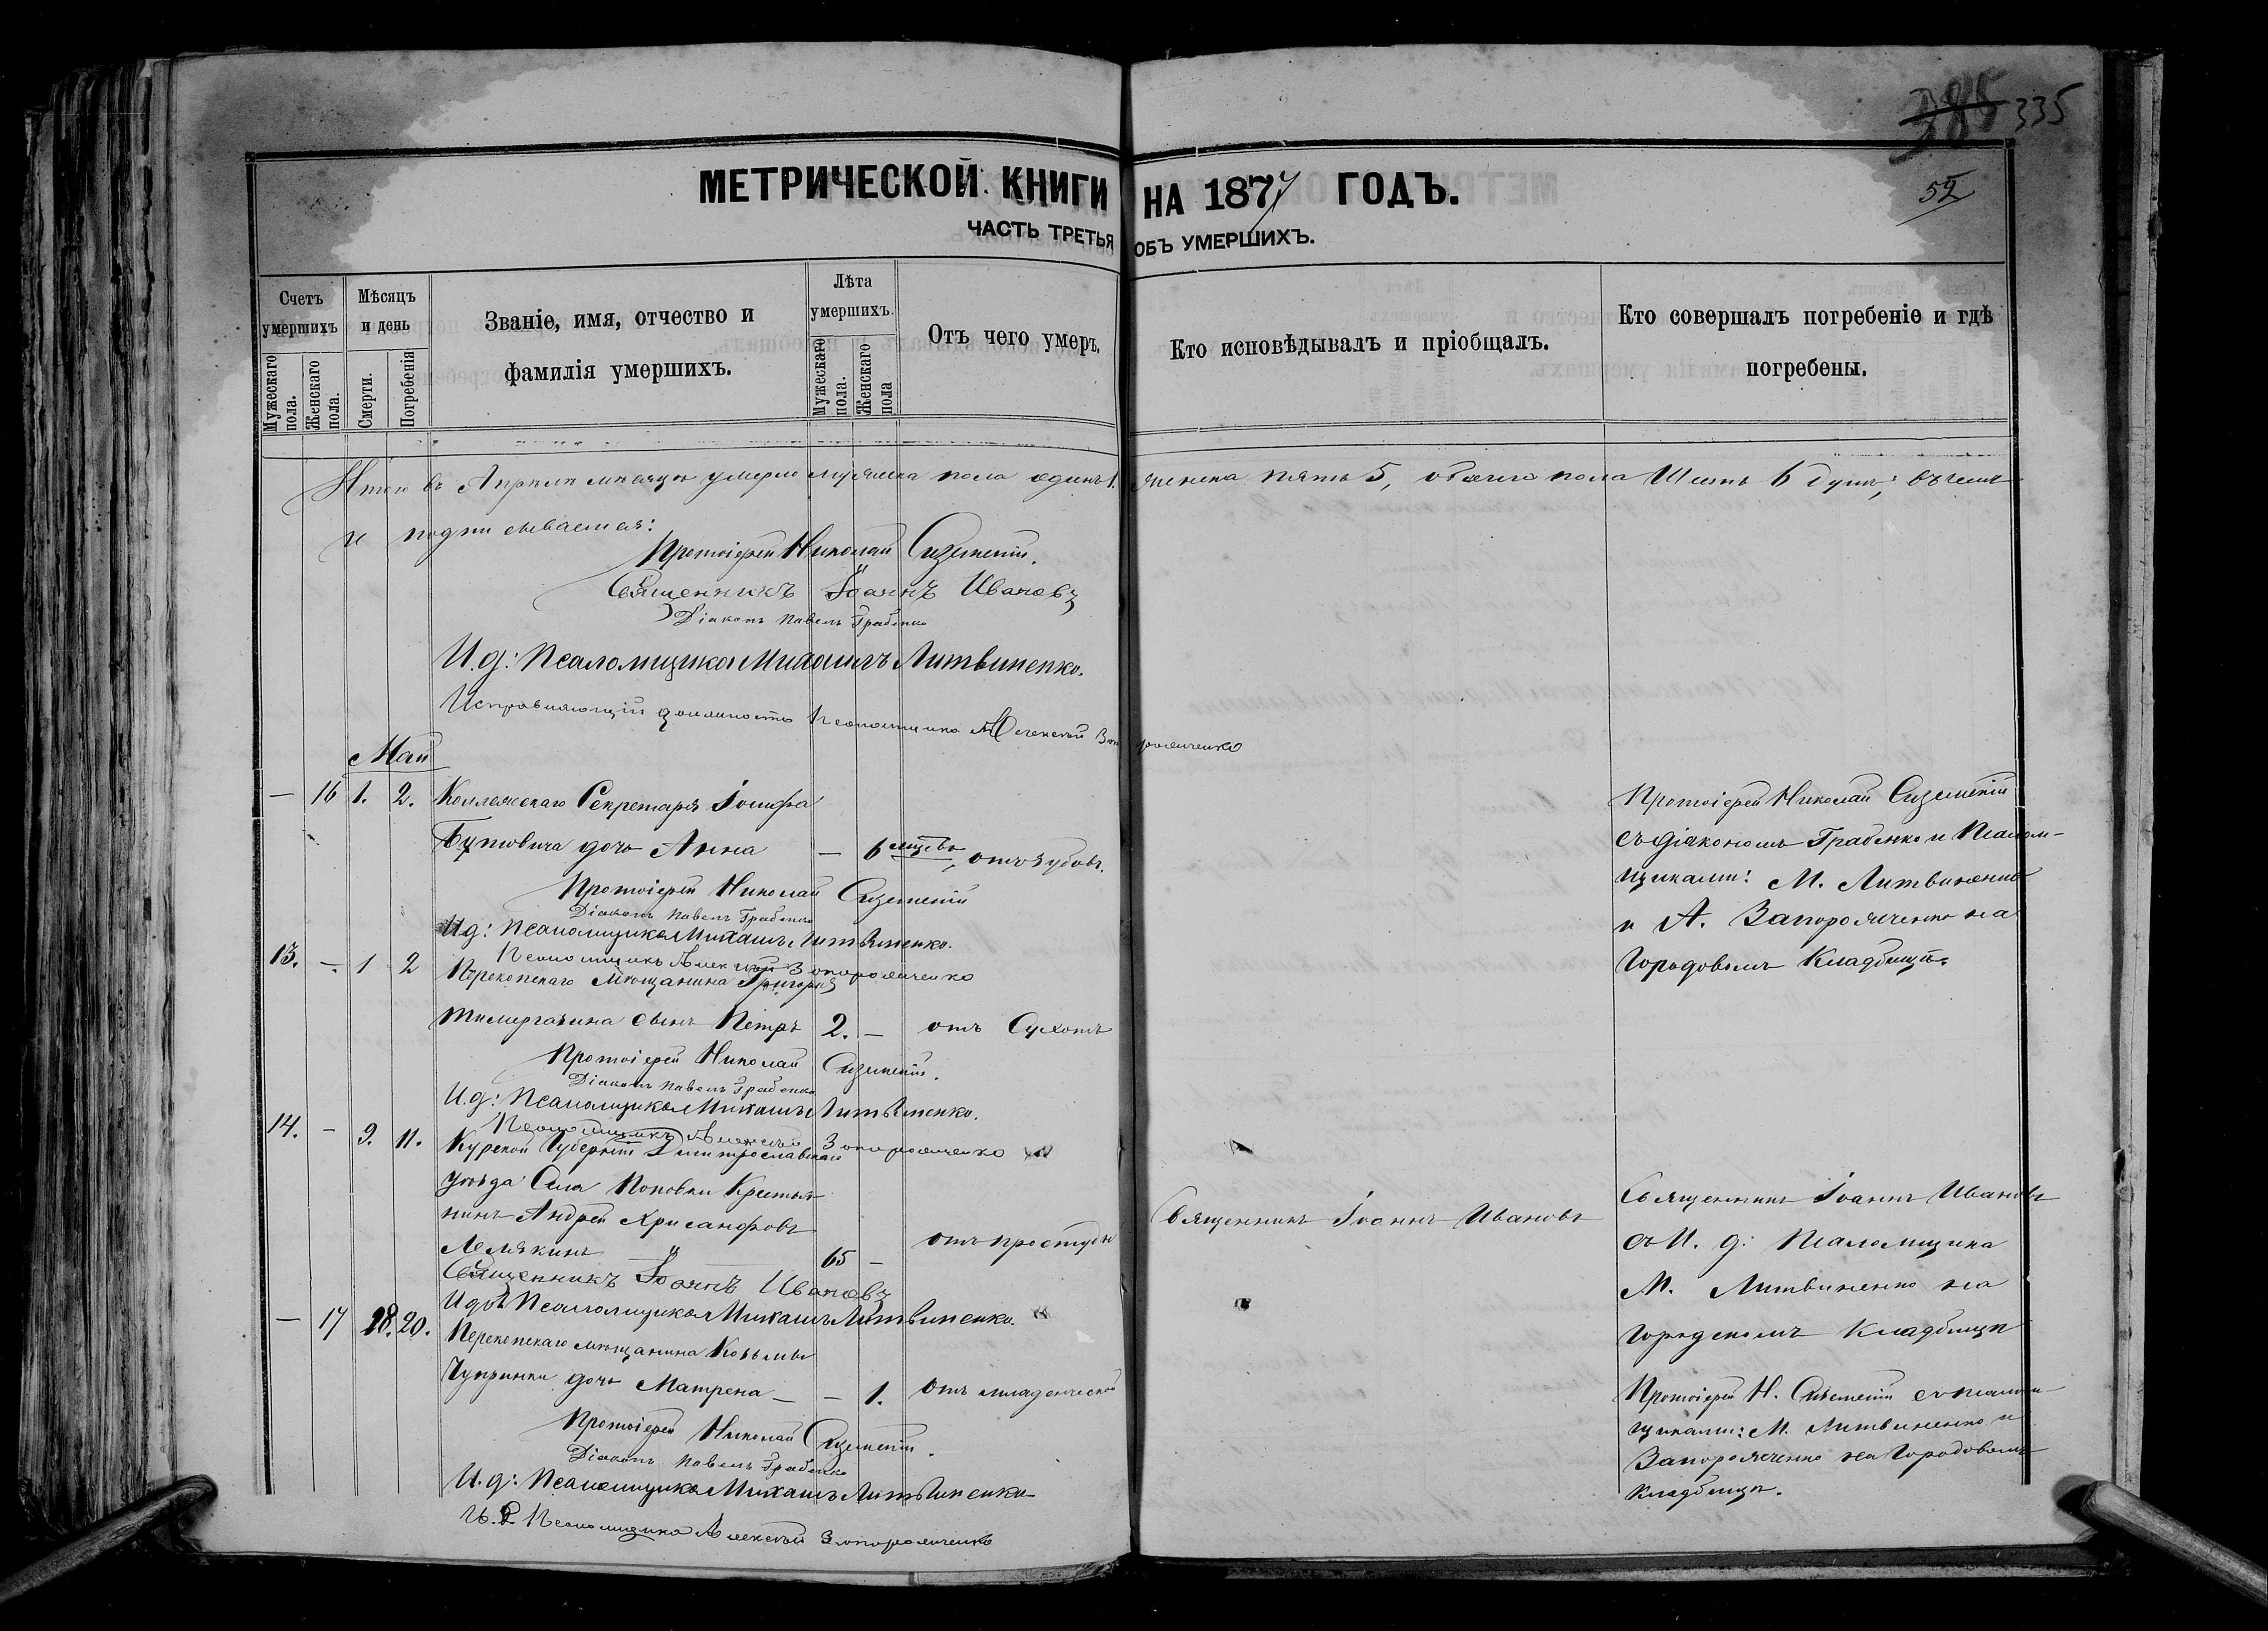 385 335
52
МЕТРИЧЕСКОЙ КНИГИ НА 1877 ГОДЪ.
ЧАСТЬ ТРЕТЬЯ ОБЪ УМЕРШИХЪ.
Счетъ умершихъ
Мужескаго пола.
Женскаго пола.
Мѣсяцъ и день
Смерти.
Погребенія
Званіе, имя, отчество и
фамилія умершихъ.
Лѣта умершихъ.
Мужескаго пола.
Женскаго пола
Отъ чего умеръ.
Кто исповѣдывалъ и пріобщалъ.
Кто совершалъ погребеніе и гдѣ
погребены.
Итого въ Апрѣлѣ мѣсяцѣ умерло мужеска пола одинъ 1. женска пять 5, обоего пола Шесть 6 душъ; въ чемъ
и подписываемся:
Протоіерей Николай
Священникъ Іоаннъ Ивановъ
Діаконъ Павелъ Грабенко
И.д: Псаломщика Михаилъ Литвиненко.
Исправляющій должность Псаломщика Алексѣй Запорожченко
Май
— 16 1. 2. Коллежскаго Секретаря Іосифа
Бутовича дочь Анна — 6 мцевъ, отъ зубовъ.
Протоіерей Николай
Діаконъ Павелъ Грабенко
И.д: Псаломщика Михаилъ Литвиненко.
Псаломщикъ Алексѣй Запорожченко
Протоіерей Николай
съ діакономъ Грабенко и Псалом-
щиками: М. Литвиненко
и А. Запорожченко на
Городовомъ Кладбищѣ.
13. — 1 2 Перекопскаго Мѣщанина Григорія
сынъ Петръ 2. — отъ Сухотъ
Протоіерей Николай
Діаконъ Павелъ Грабенко
И.д: Псаломщика Михаилъ Литвиненко.
Псаломщикъ Алексѣй Запорожченко
14. — 9. 11. Курской Губерніи Дмитрославскаго
уѣзда Села Поповки Крестья-
нинъ Андрей Хрисанфовъ
65 — отъ простуды
Священникъ Іоаннъ Ивановъ
Священникъ Іоаннъ Ивановъ
И.д: Псаломщика Михаилъ Литвиненко.
Священникъ Іоаннъ Ивановъ
съ И. д: Псаломщика
М. Литвиненко на
Городскомъ Кладбищѣ
— 17 18. 20. Перекопскаго мѣщанина Козьмы
Чупринки дочь Матрена — — 1. отъ младенческой
Протоіерей Николай
Діаконъ Павелъ Грабенко
И.д: Псаломщика Михаилъ Литвиненко
И. д. Псаломщика Алексѣй Запорожченко
Протоіерей Н. съ псалом-
щиками: М. Литвиненко и
Запорожченко на Городовомъ
Кладбищѣ.